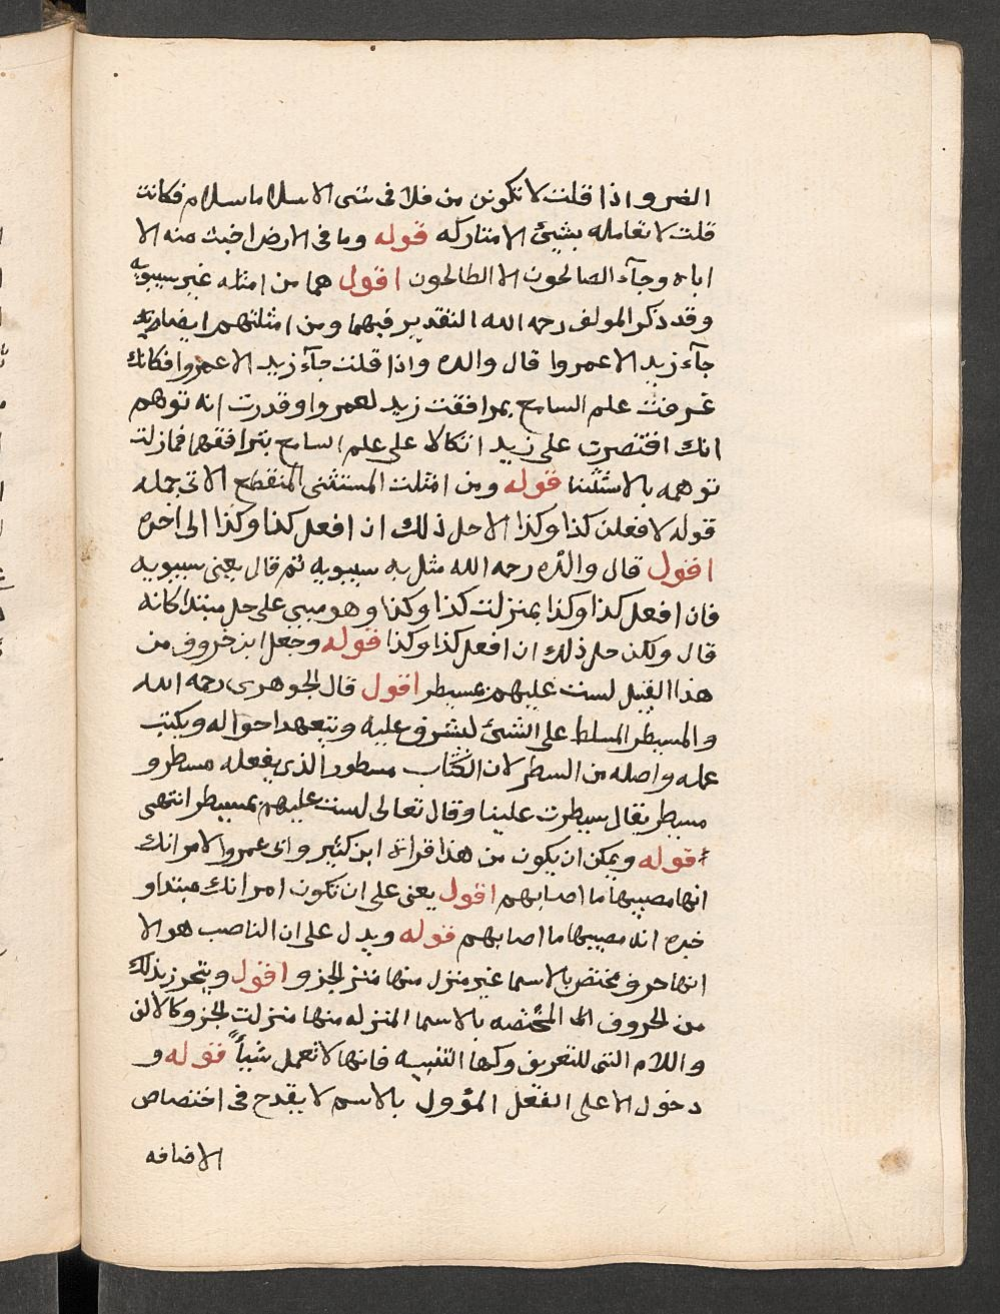 الضر واذا قلت لا تكونن من فلان فى شى الا سلاما بسلام فكانك
قلت لا تعامله بشيئ الا متاركه قوله وما فى الارض اخبث منه الا
اياه وجآء الصالحون الا الطالحون اقول هما من امثله غير سيبويه
وقد ذكر المولف رحمه الله التقدير فيهما ومن امثلتهم ايضا
جآء زيد الا عمروا قال والده واذا قلت جآء زيد الا عمروا فكانك
عرفت علم السامع بمرافقت زيد لعمروا وقدرت انه توهم
انك اقتصرت على زيد اتكالا على علم السامع بترافقهما فازلت
توهمه بالاستثنا قوله ومن امثلت المستثنى المنقطع الاتى جمله
قوله لافعلن كذا وكذا الا حل ذلك ان افعل كذا وكذا الى اخره
اقول قال والده رحمه الله مثل به سيبويه ثم قال يعنى سيبويه
فان افعل كذا وكذا بمنزلت كذا وكذا وهو مبنى على حل مبتدا كانه
قال ولكن حل ذلك ان افعل كذا وكذا قوله وجعل ابن خروف من
هذا القبيل لست عليهم بمسيطر اقول قال الجوهرى رحمه الله
والمسيطر المسلط على الشئ ليشرف عليه ويتعهد احواله ويكتب
عمله واصله من السطر لان الكتاب مسطور الذى يفعله مسطر و
مسيطر يقال سيطرت علينا وقال تعالى لست عليهم بمسيطر انتهى
قوله ويمكن ان يكون من هذا قراءة ابن كثير وابى عمروا الا امراتك
انها مصيبها ما اصابهم اقول يعنى على ان تكون امراتك مبتدا و
خبره انه مصيبها ما اصابهم قوله ويدل على ان الناصب هو الا
انها حرف مختص بالاسما غير منزل منها منزلة الجزو اقول ويتحرز بذلك
من الحروف المختصه بالاسما المنزله منها منزلت الجزو كالالف
واللام التى للتعريف وكها التنبيه فانها لا تعمل شيأ قوله و
دخول الا على الفعل المؤول بالاسم لا يقدح فى اختصاص
الاضافه